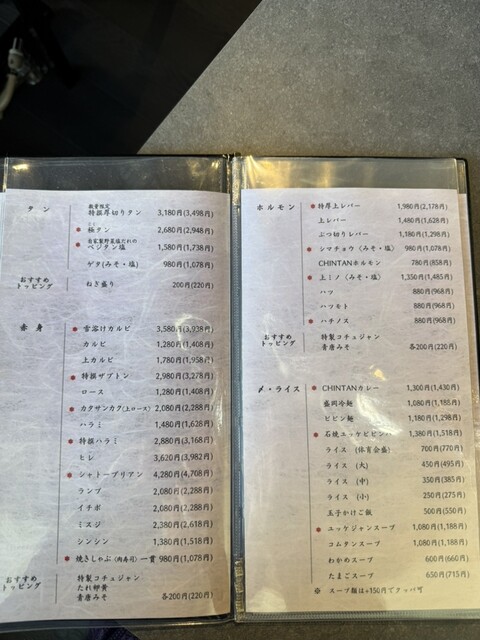 タン
数量限定
特撰厚切りタン 3,180円(3,498円)
極タン 2,680円(2,948円)
自家製野菜塩だれの
ベジタン塩 1,580円(1,738円)
ゲタ(みそ・塩) 980円(1,078円)
おすすめ
トッピング
ねぎ盛り 200円(220円)
赤身
雪溶けカルビ 3,580円(3,938円)
カルビ 1,280円(1,408円)
上カルビ 1,780円(1,958円)
特撰ザブトン 2,980円(3,278円)
ロース 1,280円(1,408円)
カタサンカク(上ロース) 2,080円(2,288円)
ハラミ 1,480円(1,628円)
特撰ハラミ 2,880円(3,168円)
ヒレ 3,620円(3,982円)
シャトーブリアン 4,280円(4,708円)
ランプ 2,080円(2,288円)
イチボ 2,080円(2,288円)
ミスジ 2,380円(2,618円)
シンシン 1,380円(1,518円)
焼きしゃぶ〈肉寿司〉一貫 980円(1,078円)
おすすめ
トッピング
特製コチュジャン
たれ卵黄
青唐みそ 各200円(220円)
ホルモン
特厚上レバー 1,980円(2,178円)
上レバー 1,480円(1,628円)
ぶつ切りレバー 1,180円(1,298円)
シマチョウ〈みそ・塩〉 980円(1,078円)
CHINTANホルモン 780円(858円)
上ミノ〈みそ・塩〉 1,350円(1,485円)
ハツ 880円(968円)
ハツモト 880円(968円)
ハチノス 880円(968円)
おすすめ
トッピング
特製コチュジャン
青唐みそ 各200円(220円)
〆・ライス
CHINTANカレー 1,300円(1,430円)
盛岡冷麺 1,080円(1,188円)
ビビン麺 1,180円(1,298円)
石焼ユッケビビンバ 1,380円(1,518円)
ライス (体育会盛) 700円(770円)
ライス (大) 450円(495円)
ライス (中) 350円(385円)
ライス (小) 250円(275円)
玉子かけご飯 500円(550円)
ユッケジャンスープ 1,080円(1,188円)
コムタンスープ 1,080円(1,188円)
わかめスープ 600円(660円)
たまごスープ 650円(715円)
※ スープ類は+150円でクッパ可